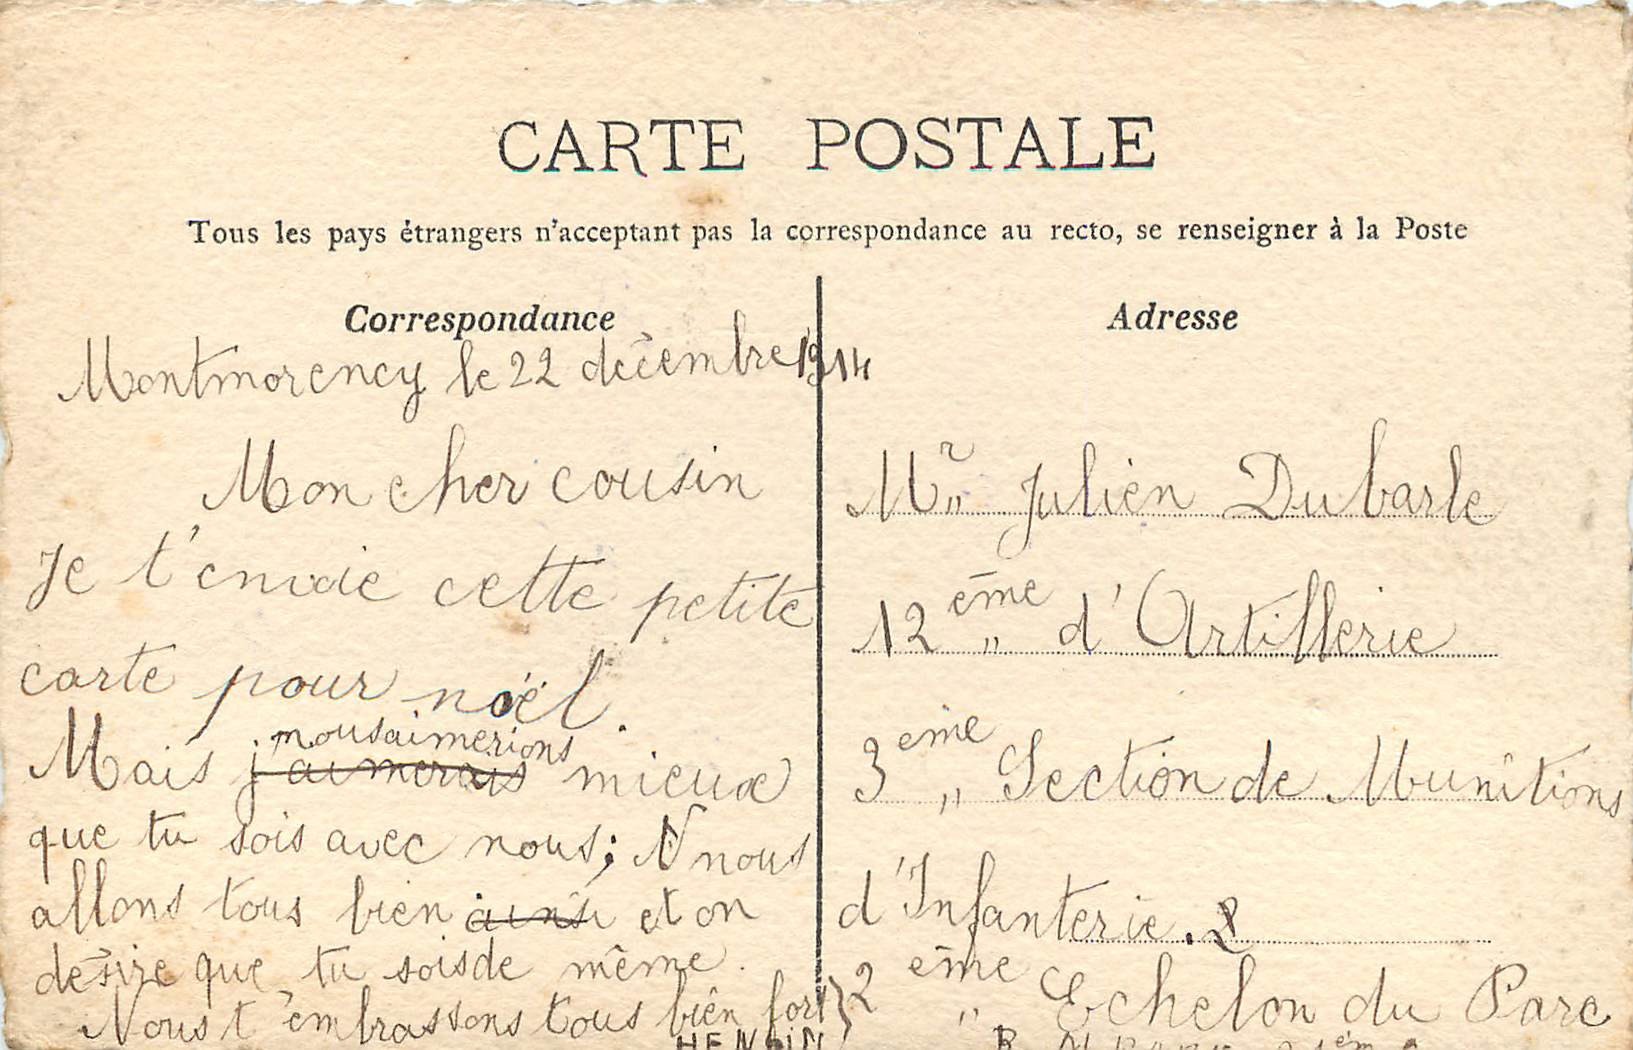 CARTE POSTALE
Tous les pays étrangers n'acceptant pas la correspondance au recto, se renseigner à la Poste
Correspondance
Montmorency le 22 décembre 1914
Mon cher cousin
Je t'envoie cette petite
carte pour noël.
nous aimerions
Mais j'aimerais mieux
que tu sois avec nous; N nous
allons tous bien ainsi et on
désire que tu sois de même.
Nous t'embrassons tous bien fort
HENRIN
Adresse
Mr Julien Dubarle
12ème d'Artillerie
3ème Section de Munitions
d'Infanterie. 2
2ème Echelon du Parc